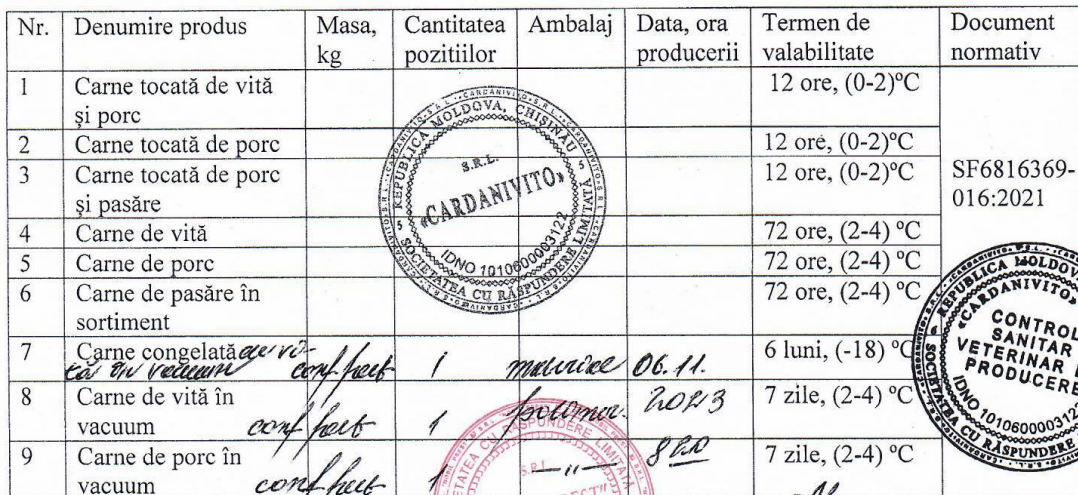 Nr. Denumire produs Masa, kg Cantitatea pozitiilor Ambalaj Data, ora producerii Termen de valabilitate Document normativ
1 Carne tocată de vită și porc 12 ore, (0-2)ºC
2 Carne tocată de porc 12 ore, (0-2)ºC
3 Carne tocată de porc și pasăre 12 ore, (0-2)ºC
SF6816369-016:2021
4 Carne de vită 72 ore, (2-4) ºC
5 Carne de porc 72 ore, (2-4) ºC
6 Carne de pasăre în sortiment 72 ore, (2-4) ºC
7 Carne congelată de vită în vacuum conf. fact 1 06.11. 6 luni, (-18) ºC
8 Carne de vită în vacuum conf. fact 1 2023 7 zile, (2-4) ºC
9 Carne de porc în vacuum conf. fact 1 -//- 8 00 7 zile, (2-4) ºC
REPUBLICA MOLDOVA, CHIȘINĂU
S.R.L.
«CARDANIVITO»
IDNO 1010600003122
SOCIETATEA CU RĂSPUNDERE LIMITATĂ
REPUBLICA MOLDOVA
«CARDANIVITO»
CONTROL
SANITAR
VETERINAR
PRODUCERE
IDNO 101060000312
CU RĂSPUNDERE
CU RĂSPUNDERE LIMITATĂ
S.R.L.